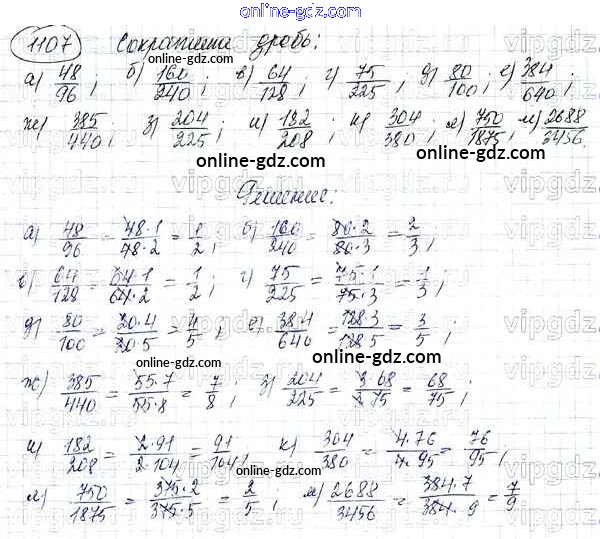 online-gdz.com
1107 Сократите дробь:
а) 48/96; б) 160/240; в) 64/128; г) 75/225; д) 80/100; е) 384/640;
ж) 385/440; з) 204/225; и) 182/208; к) 304/380; л) 750/1875; м) 2688/3456.
online-gdz.com online-gdz.com
Решение:
а) 48/96 = 48·1/48·2 = 1/2; б) 160/240 = 80·2/80·3 = 2/3;
в) 64/128 = 64·1/64·2 = 1/2; г) 75/225 = 75·1/75·3 = 1/3;
д) 80/100 = 20·4/20·5 = 4/5; е) 384/640 = 128·3/128·5 = 3/5;
online-gdz.com online-gdz.com
ж) 385/440 = 55·7/55·8 = 7/8; з) 204/225 = 3·68/3·75 = 68/75;
и) 182/208 = 2·91/2·104 = 91/104; к) 304/380 = 4·76/4·95 = 76/95;
online-gdz.com online-gdz.com
л) 750/1875 = 375·2/375·5 = 2/5; м) 2688/3456 = 384·7/384·9 = 7/9
online-gdz.com